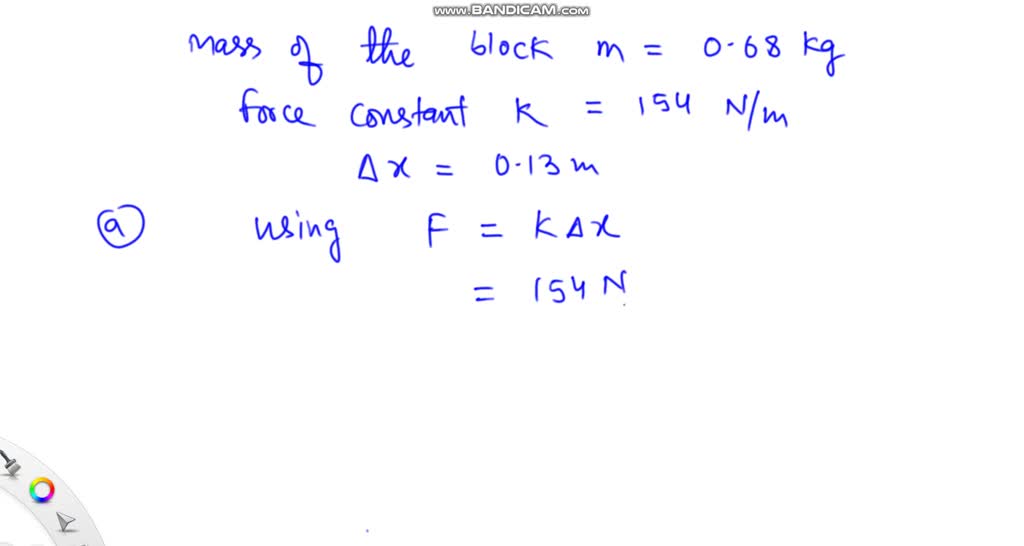 www.BANDICAM.com
mass of the block m = 0.68 kg
force constant K = 154 N/m
Δx = 0.13 m
(a) using F = KΔx
= 154 N